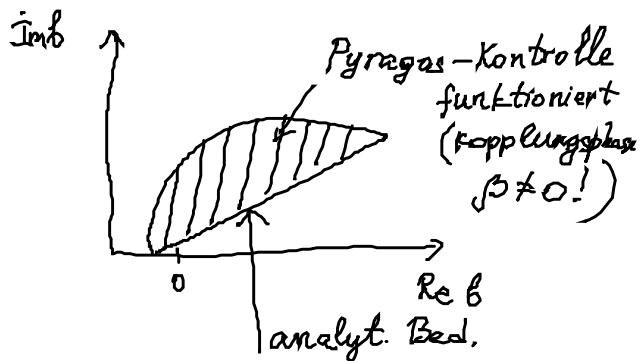 Imb
Pyragas-Kontrolle
funktioniert
(Kopplungsphase
β≠0!)
0
Re b
analyt. Bed.